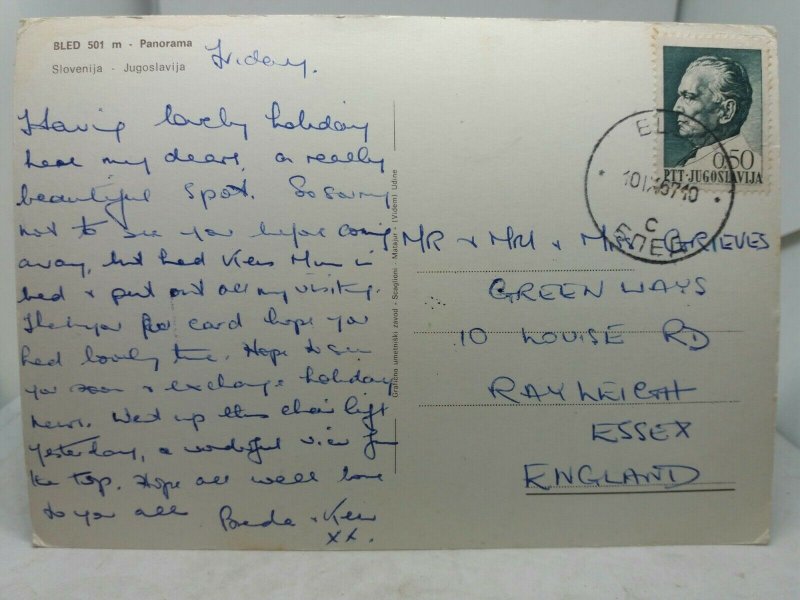 BLED 501 m - Panorama
Slovenija - Jugoslavija
Friday.
Having lovely holiday
here my dears, a really
beautiful spot. So sorry
not to see you before coming
away, but had Kens Mum in
bed & put out all my visiting.
Thankyou for card hope you
had lovely time. Hope to see
you soon & exchange holiday
news. Went up this chair lift
yesterday, a wonderful view from
the top. Hope all well love
to you all
& Ken
xx.
Grafično umetniški zavod - Scaglioni - Matajur - (Videm) Udine
0.50
PTT-JUGOSLAVIJA
C
БЛЕД
MR & MRS & MISS GRIEVES
GREENWAYS
10 LOUISE RD
RAYLEIGH
ESSEX
ENGLAND